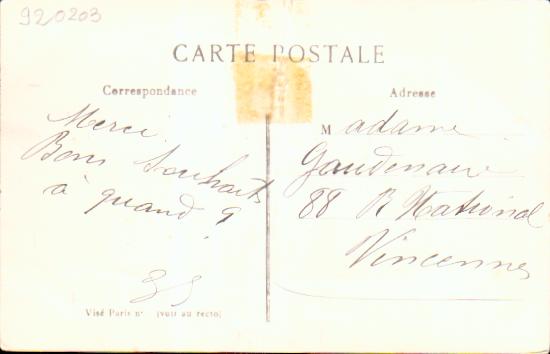 920203
CARTE POSTALE
Correspondance
Adresse
Merci
Bons Souhaits
à quand ?
Madame
88 R National
Vincennes
35
Visé Paris nº (voir au recto)